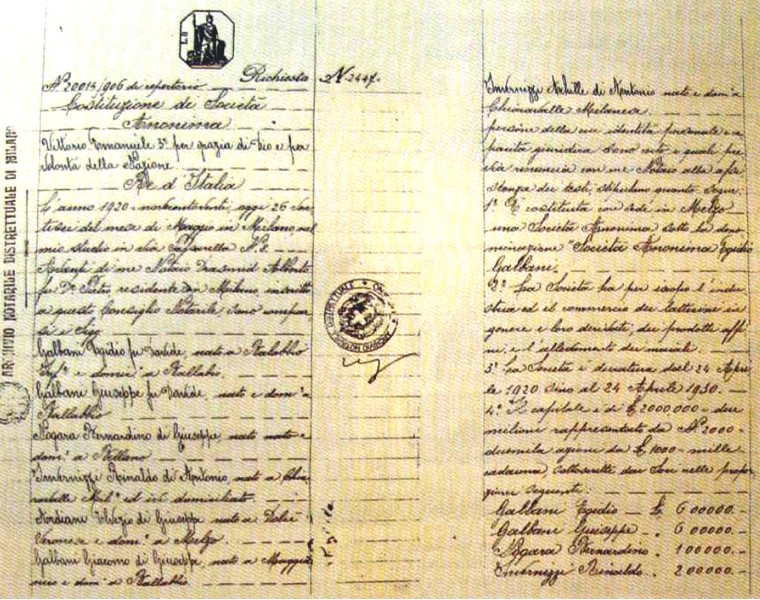 ARCHIVIO NOTARILE DISTRETTUALE DI MILANO
N° 20014/906 di repertorio Richiesta N. 2447.
Costituzione di Società
Anonima
Vittorio Emanuele 3° per grazia di Dio e per
volontà della Nazione
Re d'Italia
L'anno 1920 - oggi 26
del mese di Maggio in Milano, nel
mio studio in via N. 8.
Avanti di me Notaio Alberto
fu Dr. Pietro residente in Milano, inscritto
a questo Consiglio Notarile sono compar-
si i Sig.
Galbani Egidio fu Davide, nato a Ballabio
Inf.e e domic.° a Ballabio.
Galbani Giuseppe fu Davide, nato e dom.° a
Ballabio
Nogara Bernardino di Giuseppe, nato e
dom.° a Bellano
Invernizzi Rinaldo di Antonio, nato a Chia-
ravalle Mil.e ed ivi domiciliato.
di Giuseppe nato a Dolcè
Verona e dom.° a Melzo.
Galbani Giacomo di Giuseppe, nato a Maggia-
nico e dom.° a Ballabio
Invernizzi Achille di Antonio nato e dom.° a
Chiaravalle Milanese.
persone della cui identità personale e ca-
pacità giuridica sono certo e quali pre-
via rinuncia con me Notaio alla assi-
stenza dei testi, stipulano quanto segue:
1.° È costituita con sede in Melzo
una Società Anonima sotto la deno-
minazione "Società Anonima Egidio
Galbani.
2.° La Società ha per scopo l'indu-
stria ed il commercio dei latticini in
genere e loro derivati, dei prodotti affi-
ni, e l'allevamento dei maiali.
3.° La Società è duratura dal 24 Apri-
le 1920 sino al 24 Aprile 1950.
4.° Il capitale è di £ 2000,000 - due
milioni rappresentato da N.° 2000 -
duemila azioni da £ 1000 - mille
cadauna, sottoscritte dai Soci nelle propor-
zioni seguenti:
Galbani Egidio — £. 600000.-
Galbani Giuseppe . 600000.-
Nogara Bernardino . 100000.-
Invernizzi Rinaldo . 200000.-